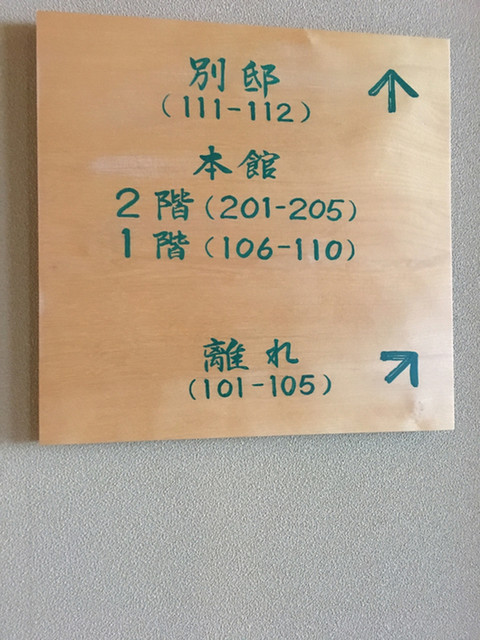 別邸 ↑
(111-112)
本館
2階(201-205)
1階(106-110)
離れ ↗
(101-105)